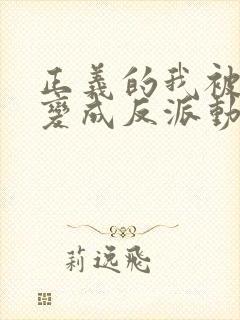 正義的我被
變成反派動
莉逸飛